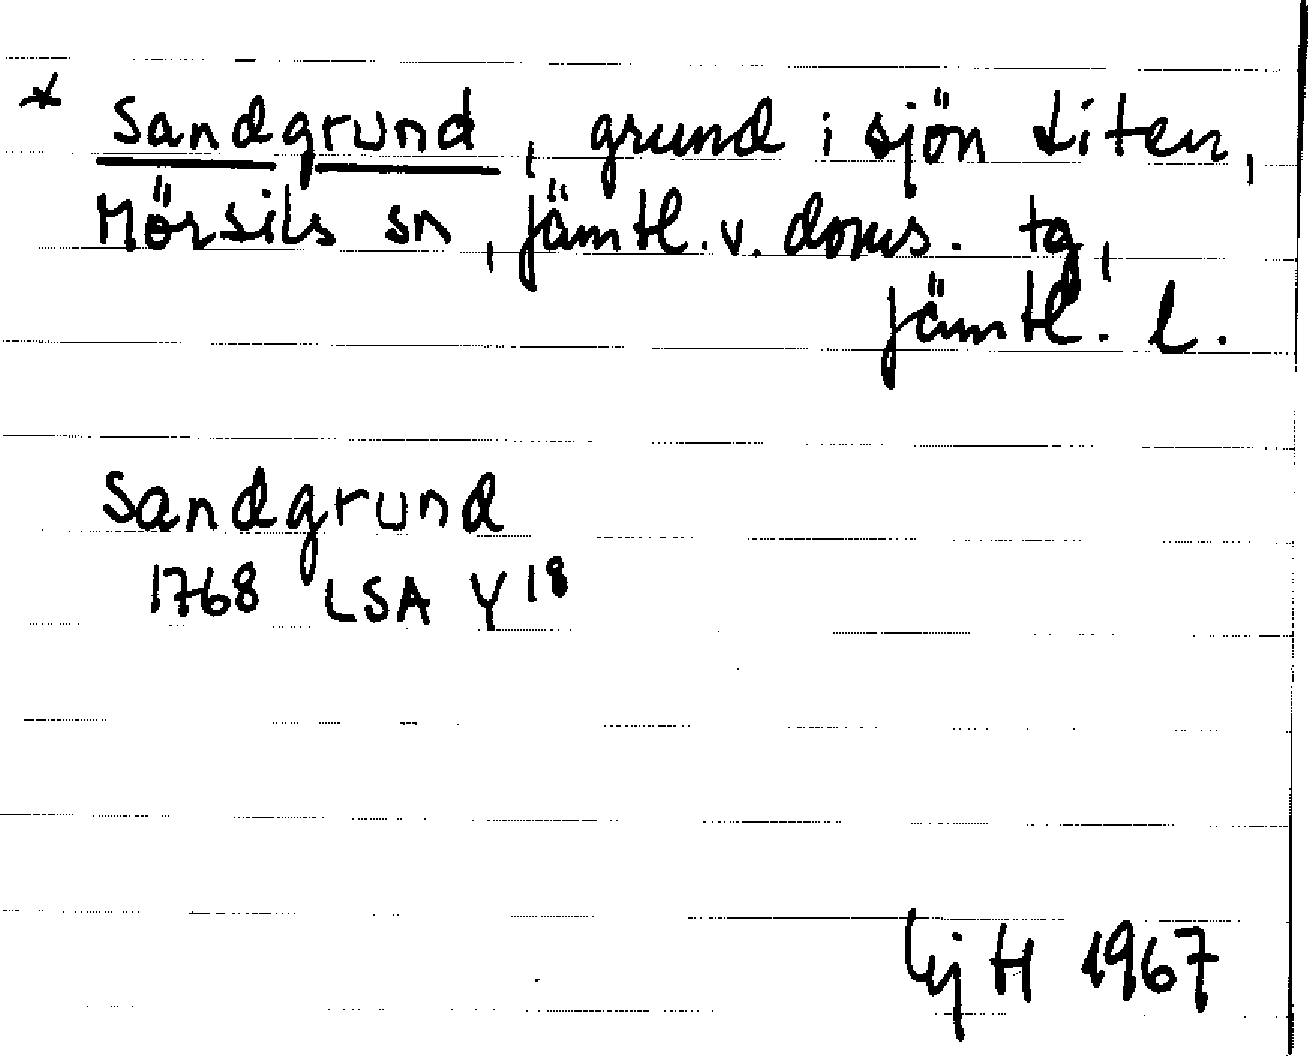 * Sandgrund, grund i sjön Liten,
Mörsils sn, Jämtl. v. doms. tg,
Jämtl. l.
Sandgrund
1768 LSA Y 18
H 1967